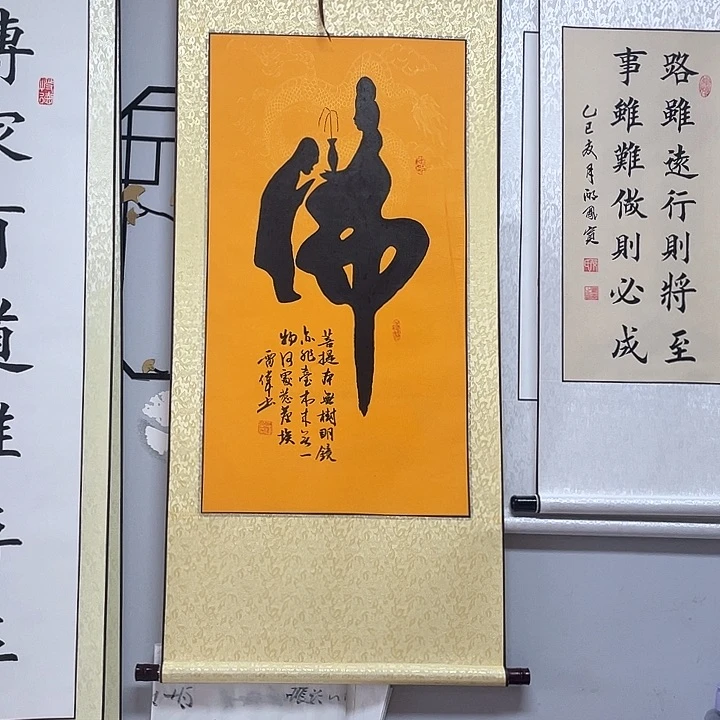 路雖遠行則將至
事雖難做則必成
乙巳夏月
佛
菩提本無樹明鏡
亦非臺本來無一
物何處惹塵埃
雷偉書
傳家有道唯